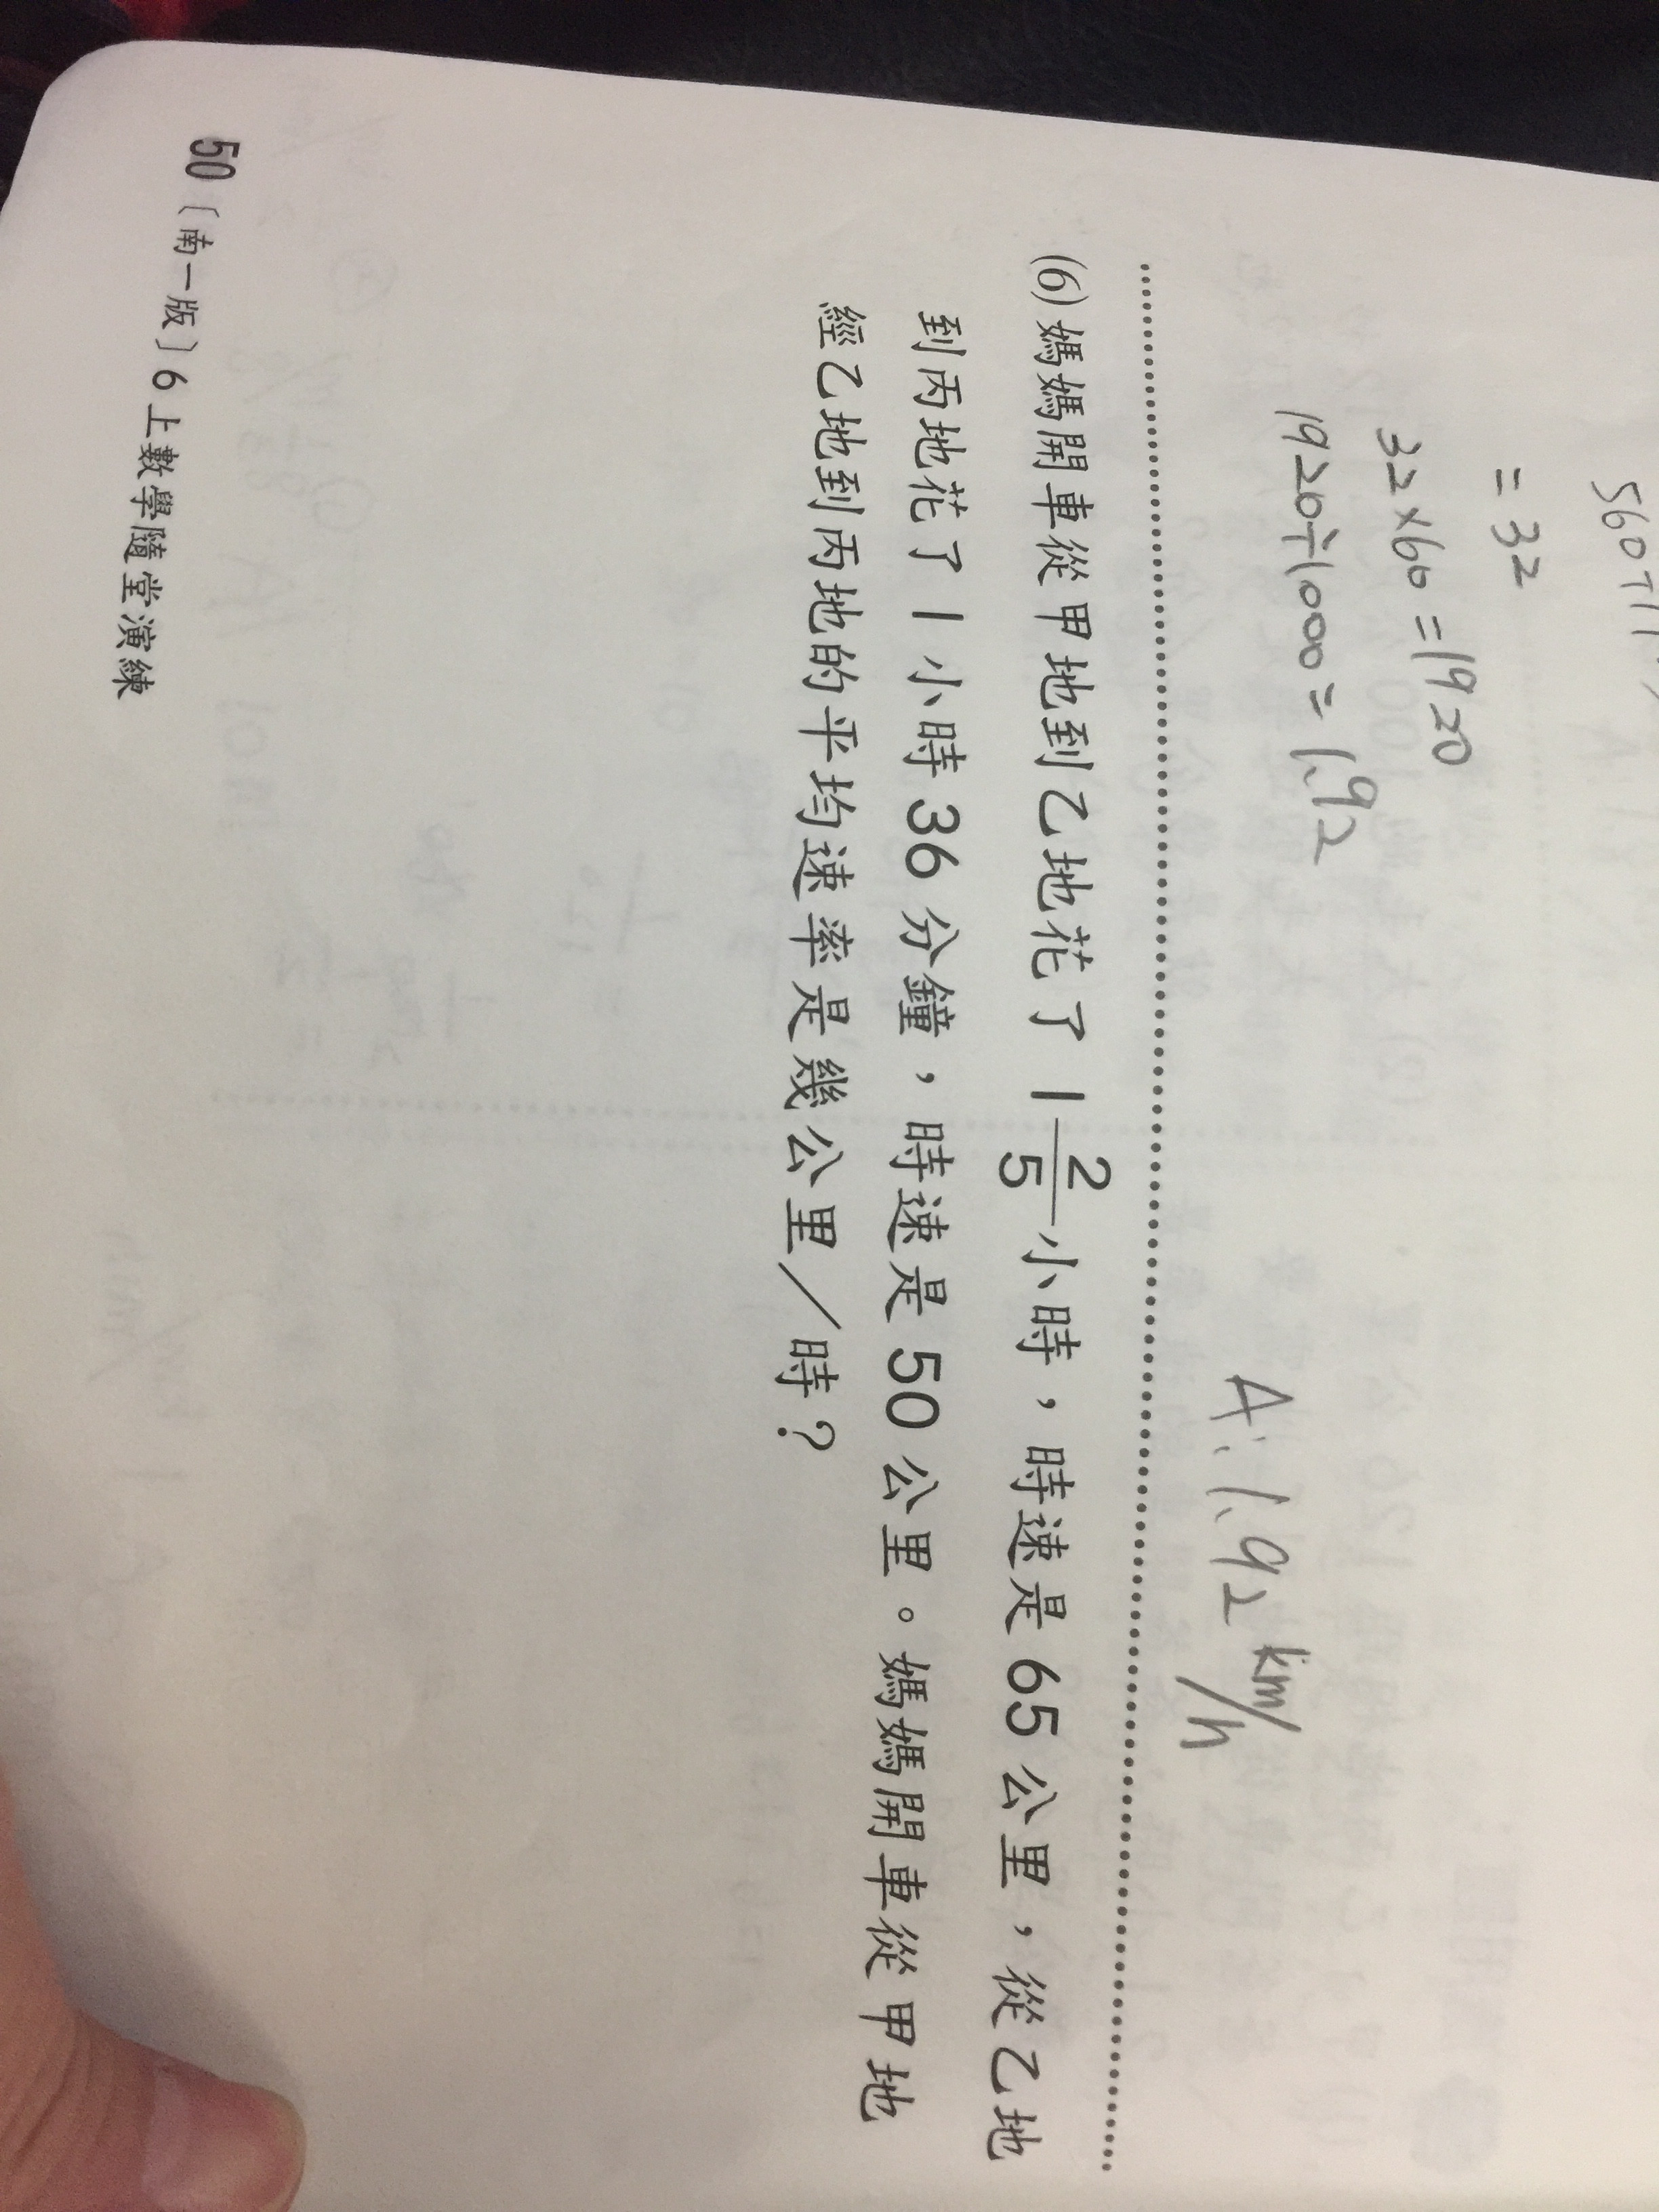 =32
32×60=1920
1920÷1000=1.92
A:1.92 km/h
(6)媽媽開車從甲地到乙地花了 1 2/5 小時，時速是 65 公里，從乙地
到丙地花了 1 小時 36 分鐘，時速是 50 公里。媽媽開車從甲地
經乙地到丙地的平均速率是幾公里／時？
50〔南一版〕6 上數學隨堂演練